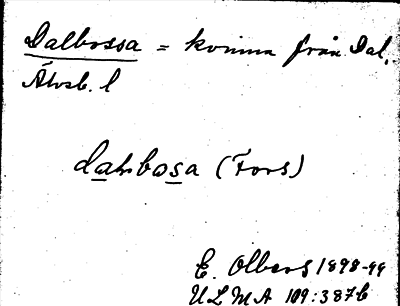 Dalbossa = kvinna från Dal.
Älvsb. l
dalbosa (Fors)
E. Olbers 1898-99
ULMA 109:387b